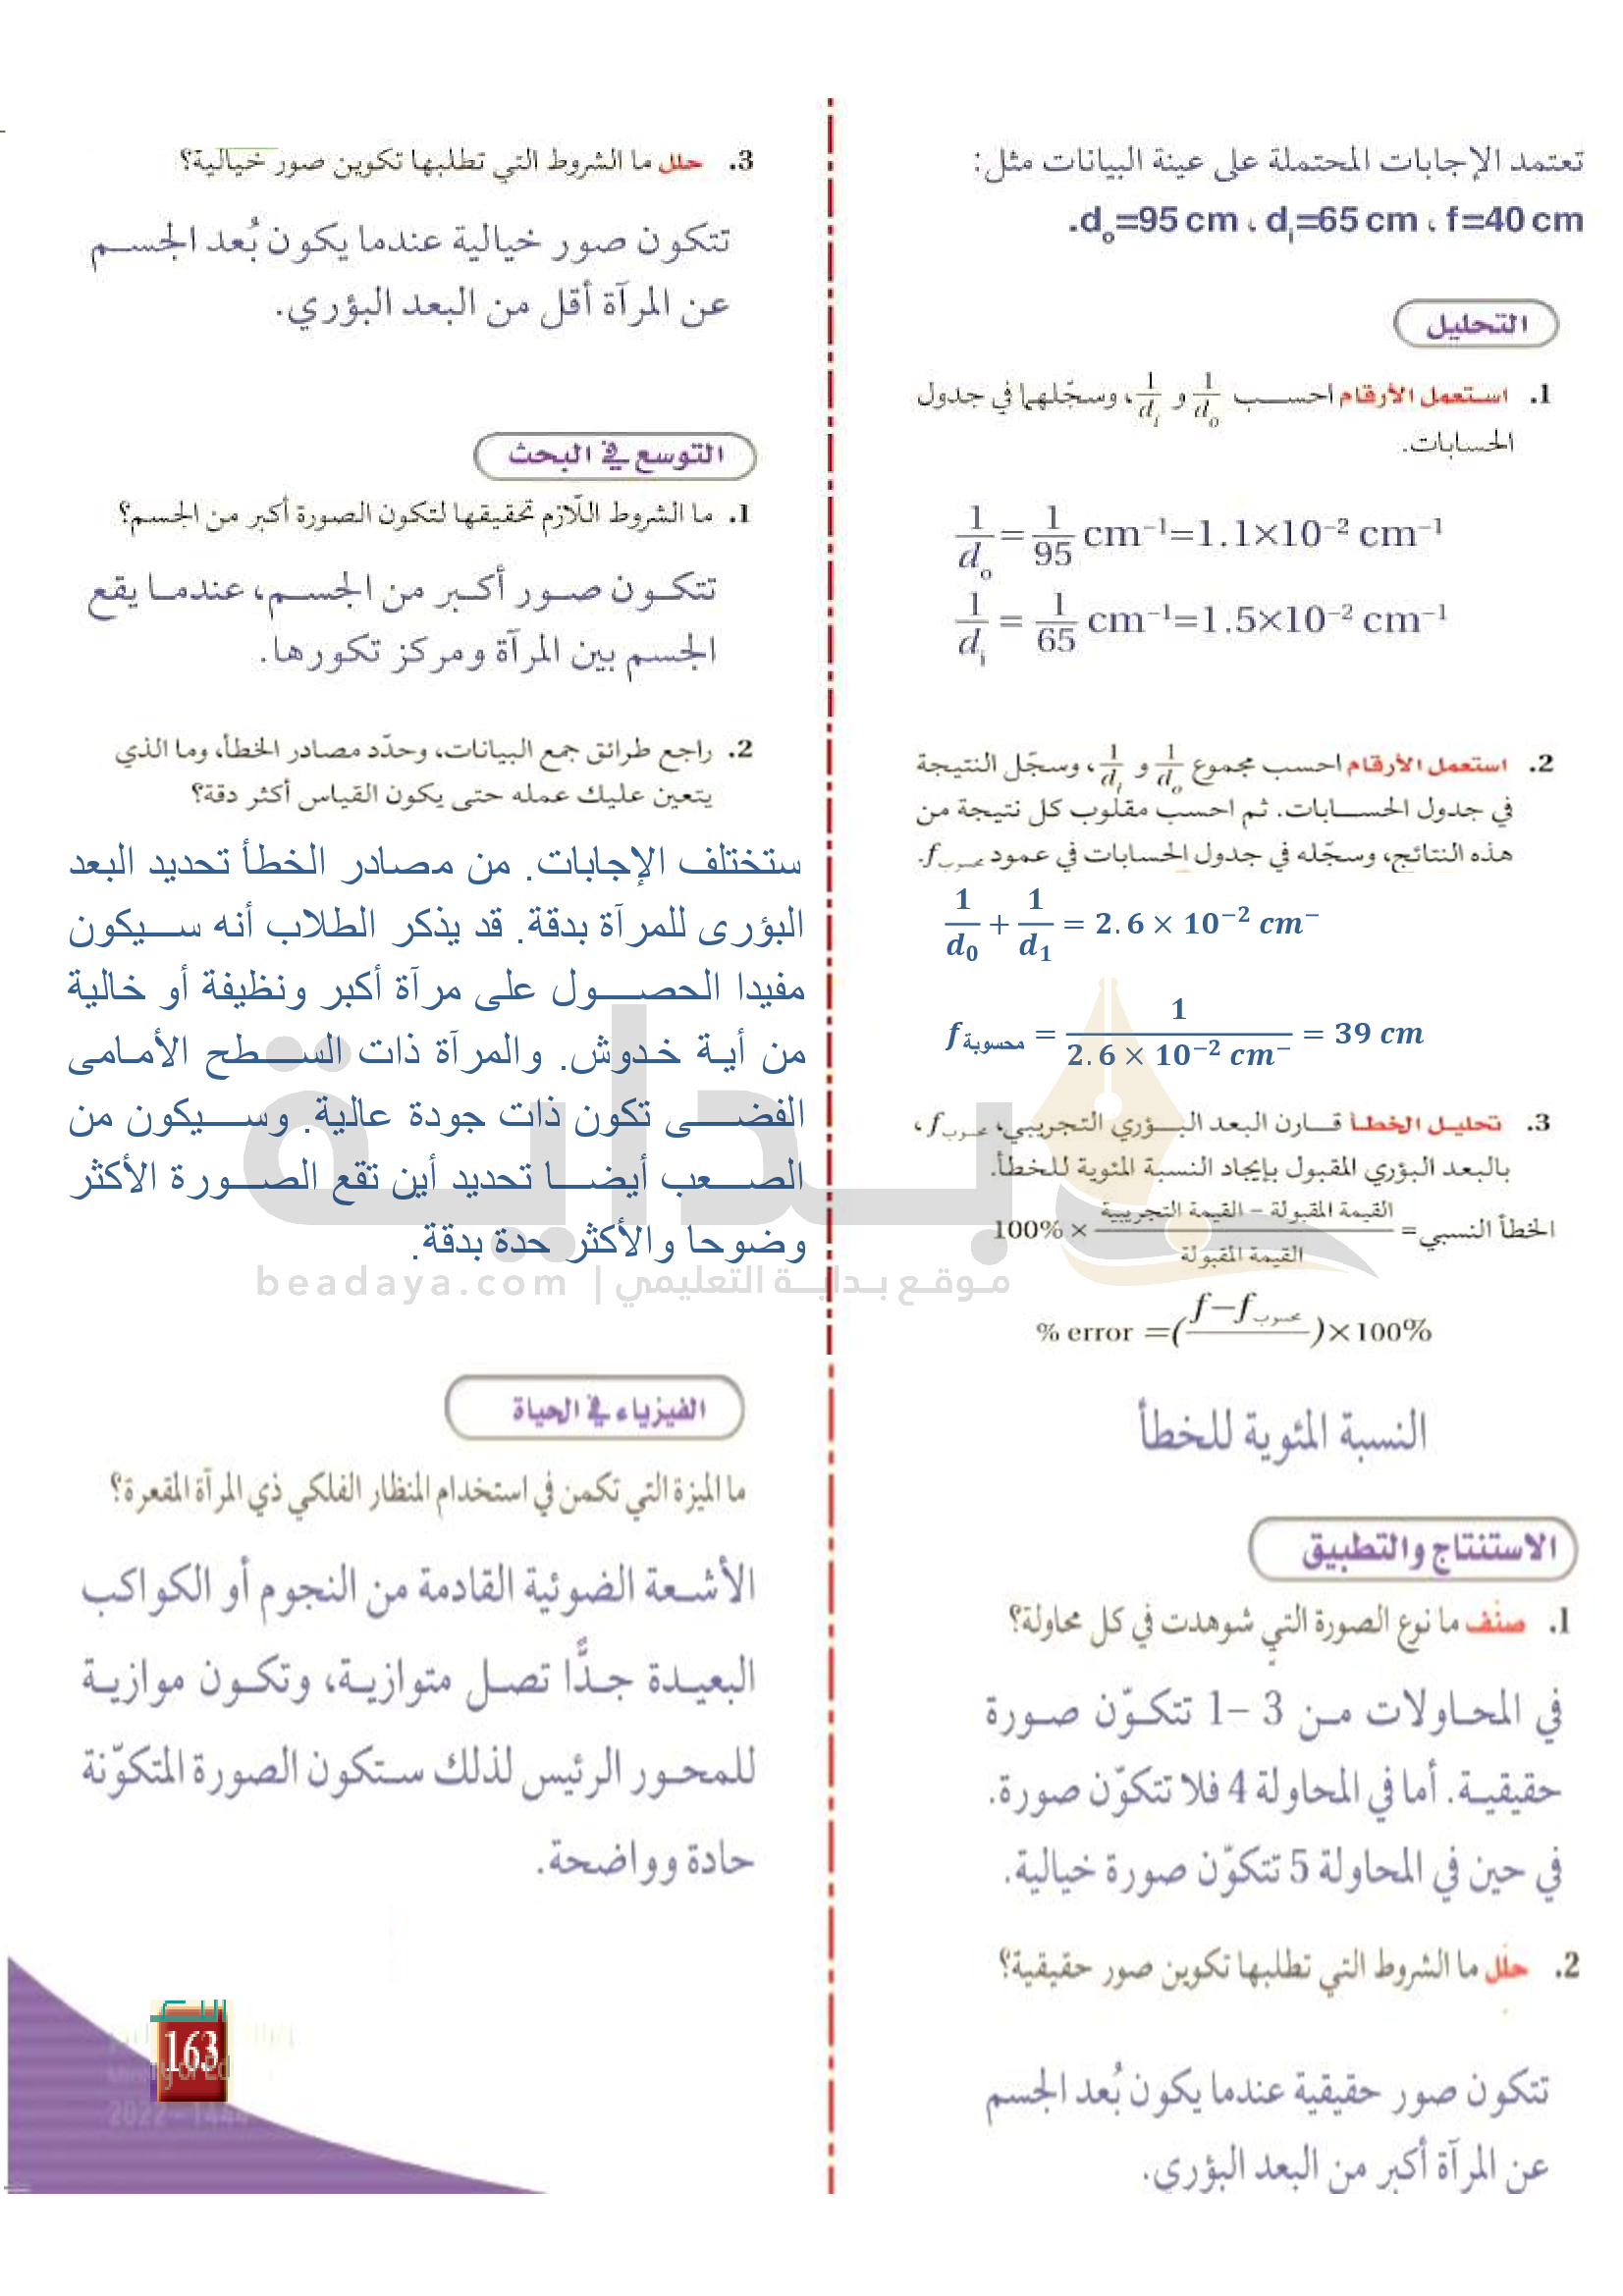 تعتمد الإجابات المحتملة على عينة البيانات مثل:
.dₒ=95 cm ، dᵢ=65 cm ، f=40 cm
التحليل
1. استعمل الأرقام احسب 1/dₒ و 1/dᵢ، وسجّلهما في جدول
الحسابات.
1/dₒ = 1/95 cm⁻¹=1.1×10⁻² cm⁻¹
1/dᵢ = 1/65 cm⁻¹=1.5×10⁻² cm⁻¹
2. استعمل الأرقام احسب مجموع 1/dₒ و 1/dᵢ، وسجّل النتيجة
في جدول الحسابات. ثم احسب مقلوب كل نتيجة من
هذه النتائج، وسجّله في جدول الحسابات في عمود f محسوب.
1/d₀ + 1/d₁ = 2.6 × 10⁻² cm⁻
f محسوبة = 1/(2.6 × 10⁻² cm⁻) = 39 cm
3. تحليل الخطأ قارن البعد البؤري التجريبي، f محسوب،
بالبعد البؤري المقبول بإيجاد النسبة المئوية للخطأ.
الخطأ النسبي = (القيمة المقبولة – القيمة التجريبية)/(القيمة المقبولة) × 100%
% error =(f–f محسوب)×100%
النسبة المئوية للخطأ
الاستنتاج والتطبيق
1. صنّف ما نوع الصورة التي شوهدت في كل محاولة؟
في المحاولات من 3 –1 تتكوّن صورة
حقيقية. أما في المحاولة 4 فلا تتكوّن صورة.
في حين في المحاولة 5 تتكوّن صورة خيالية.
2. حلّل ما الشروط التي تطلبها تكوين صور حقيقية؟
تتكون صور حقيقية عندما يكون بُعد الجسم
عن المرآة أكبر من البعد البؤري.
3. حلل ما الشروط التي تطلبها تكوين صور خيالية؟
تتكون صور خيالية عندما يكون بُعد الجسم
عن المرآة أقل من البعد البؤري.
التوسع في البحث
1. ما الشروط اللّازم تحقيقها لتكون الصورة أكبر من الجسم؟
تتكون صور أكبر من الجسم، عندما يقع
الجسم بين المرآة ومركز تكورها.
2. راجع طرائق جمع البيانات، وحدّد مصادر الخطأ، وما الذي
يتعين عليك عمله حتى يكون القياس أكثر دقة؟
ستختلف الإجابات. من مصادر الخطأ تحديد البعد
البؤرى للمرآة بدقة. قد يذكر الطلاب أنه سيكون
مفيدا الحصول على مرآة أكبر ونظيفة أو خالية
من أية خدوش. والمرآة ذات السطح الأمامى
الفضى تكون ذات جودة عالية. وسيكون من
الصعب أيضا تحديد أين تقع الصورة الأكثر
وضوحا والأكثر حدة بدقة.
بداية
موقع بداية التعليمي | beadaya.com
الفيزياء في الحياة
ما الميزة التي تكمن في استخدام المنظار الفلكي ذي المرآة المقعرة؟
الأشعة الضوئية القادمة من النجوم أو الكواكب
البعيدة جدًّا تصل متوازية، وتكون موازية
للمحور الرئيس لذلك ستكون الصورة المتكوّنة
حادة وواضحة.
163
2022 – 1444